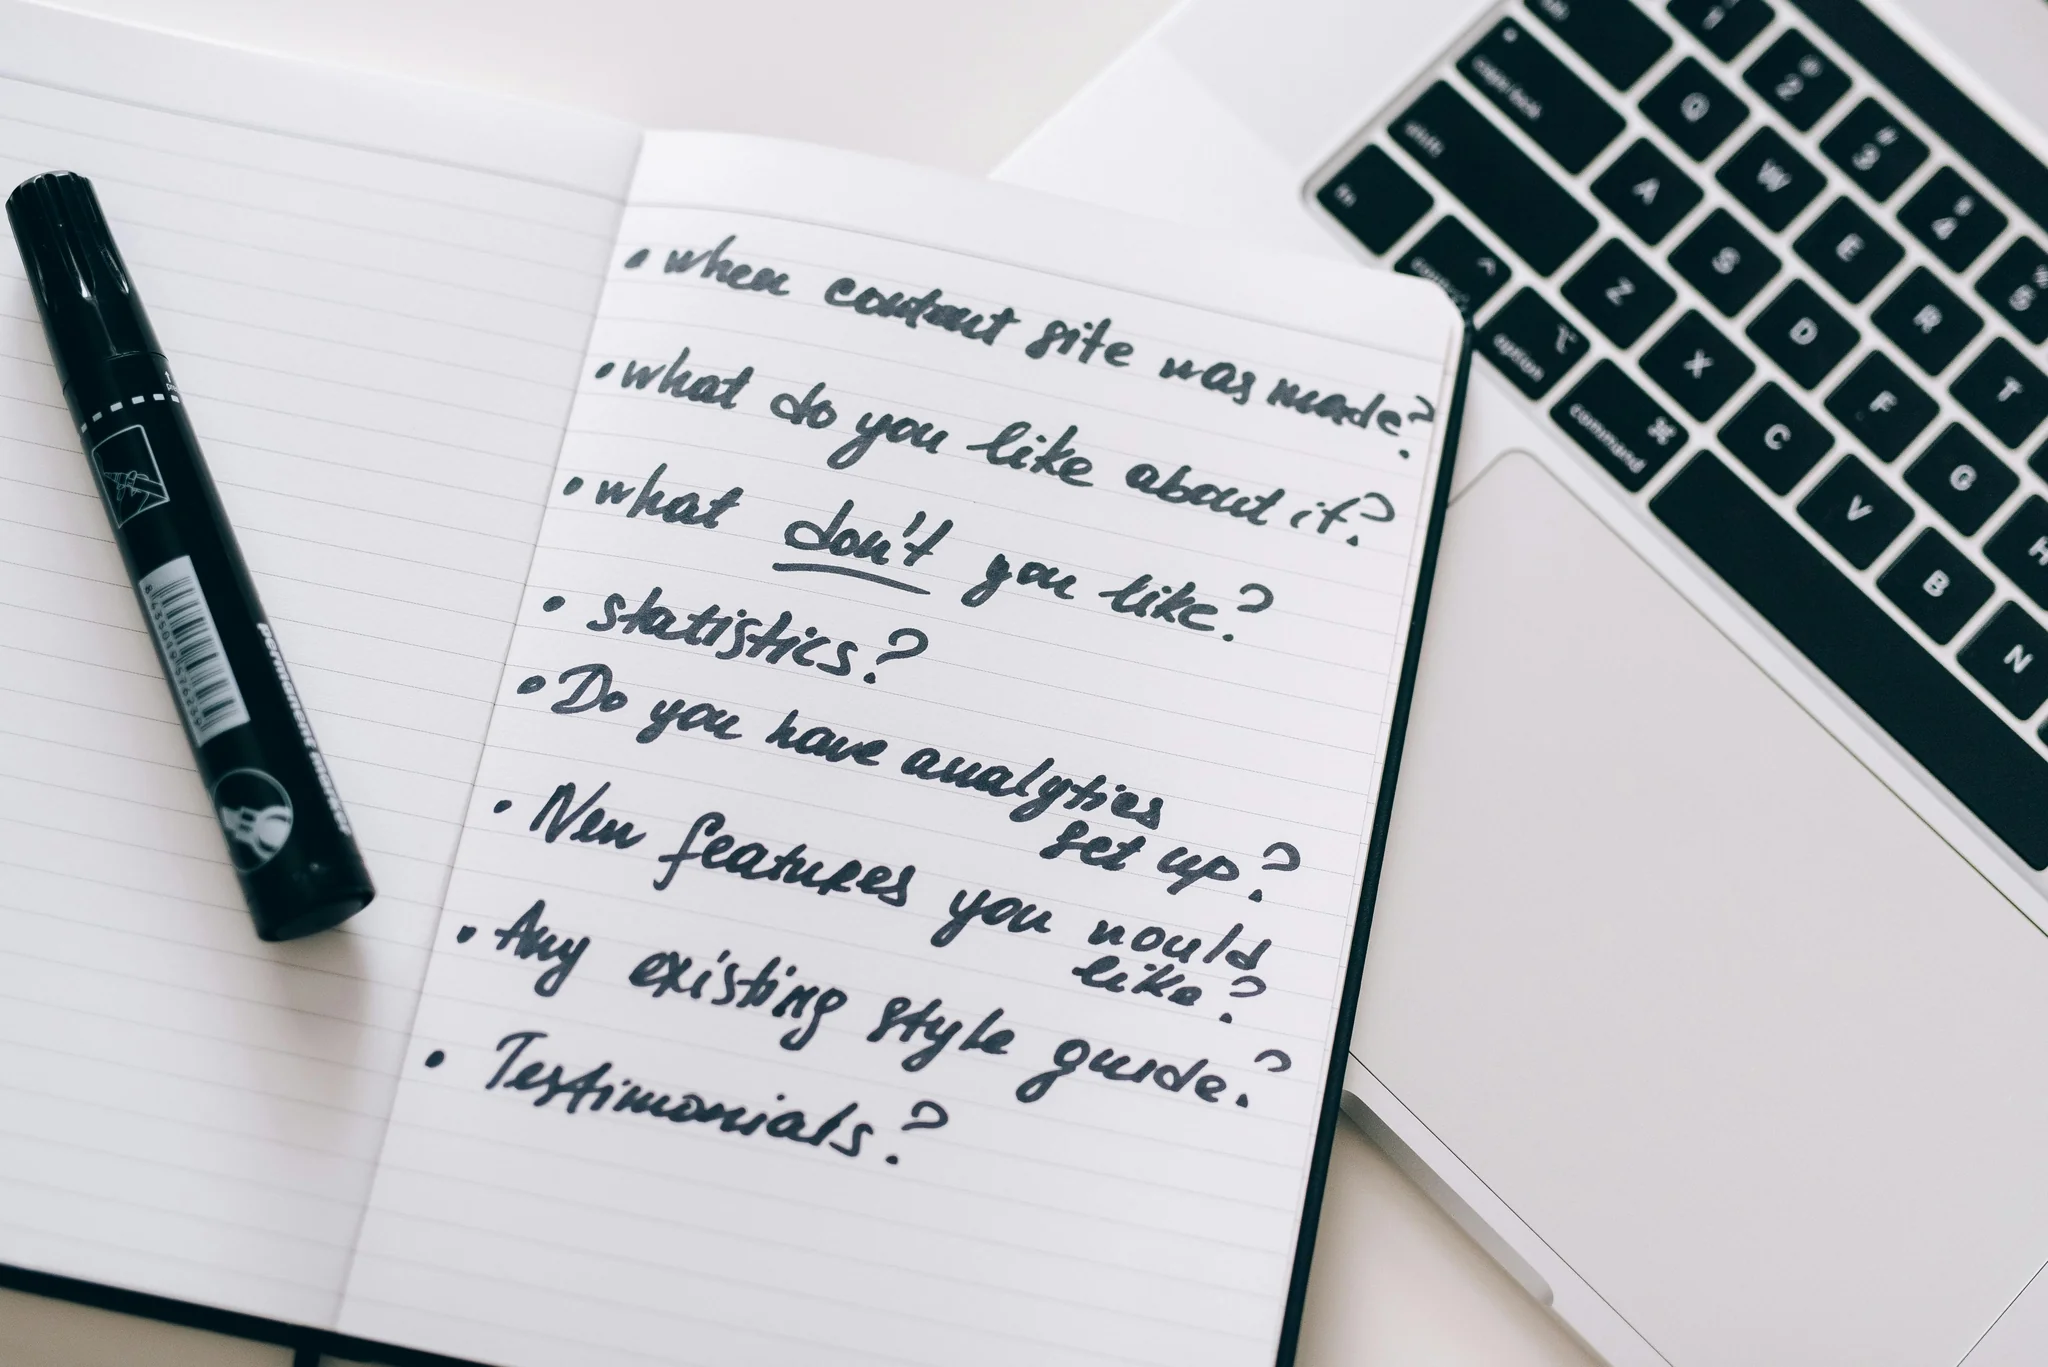 • when contract site was made?
• what do you like about it?
• what don't you like?
• statistics?
• Do you have analytics
set up?
• New features you would
like?
• Any existing style guide?
• Testimonials?
permanent marker
caps lock
shift
fn
control
option
command
1
@ 2
# 3
$ 4
% 5
Q W E R T
A S D F G H
Z X C V B N